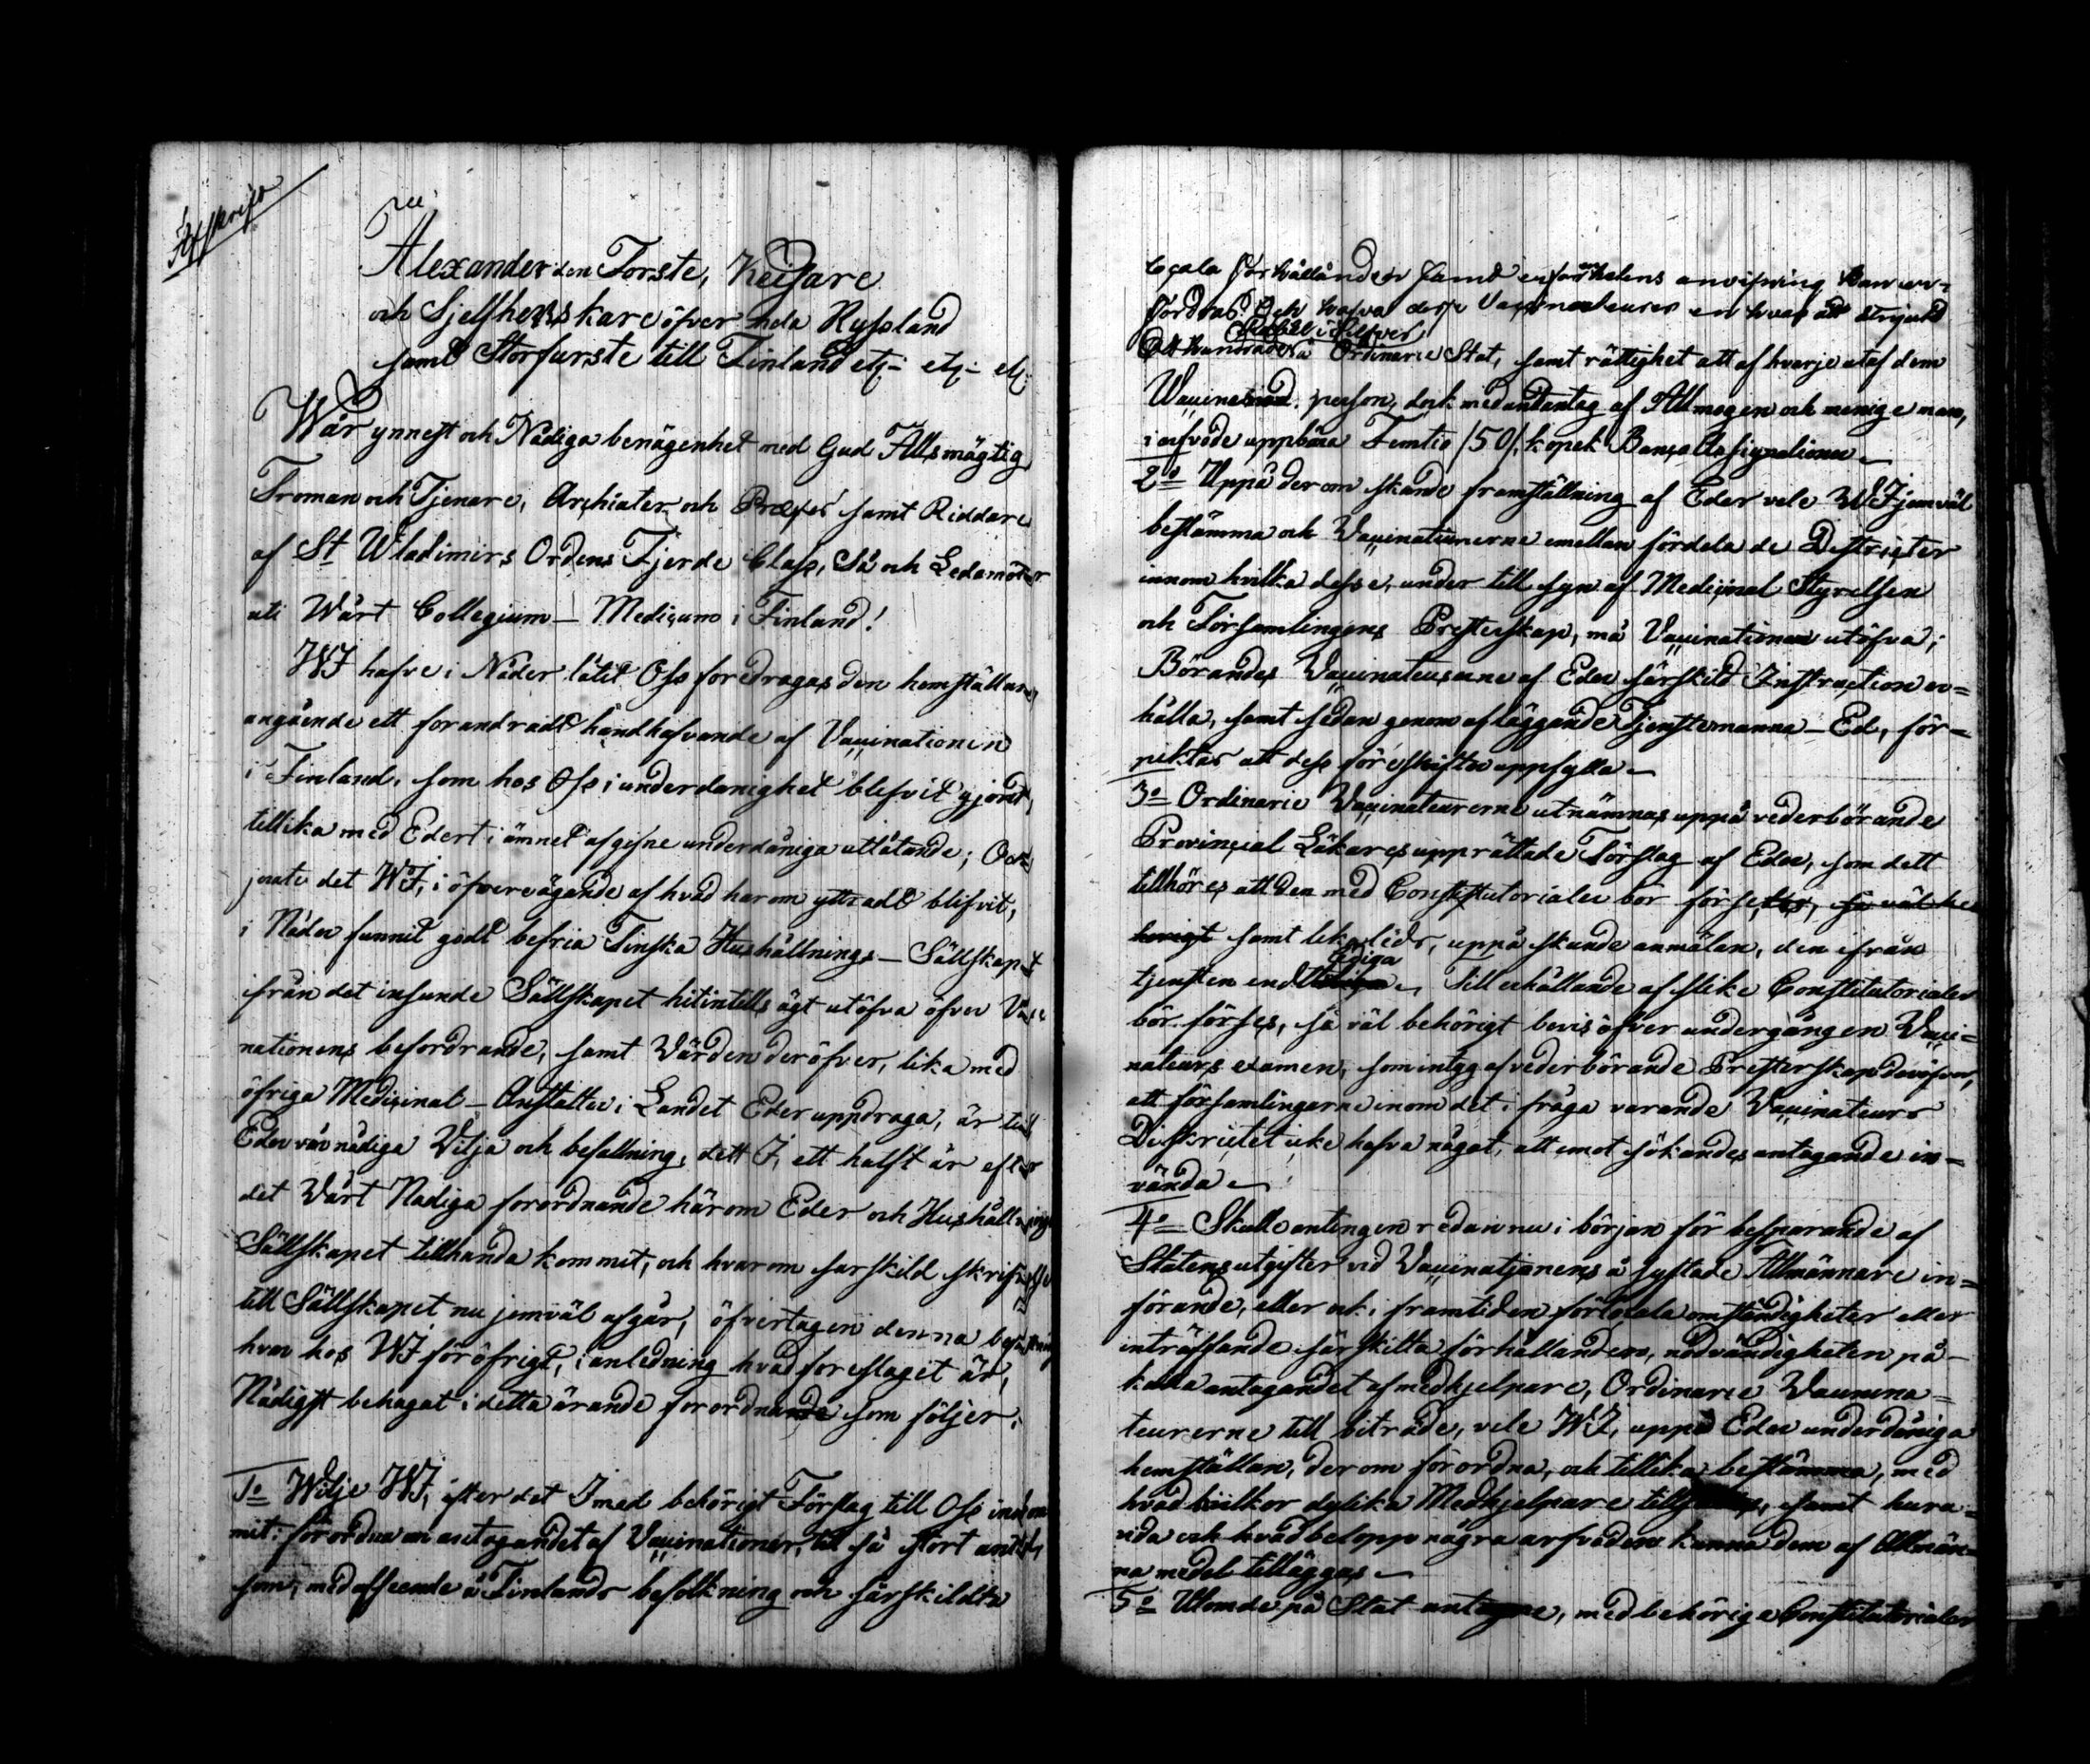 Afskrift
Alexander den Förste, Keijsare
och Sjelfherrskare öfver hela Ryssland
samt Storfurste till Finland etc- etc- etc.
Wår ynnest och Nådiga benägenhet med Gud Allsmägtig,
Troman och Tjenare, Archiater och Præses samt Riddare
af St Wladimirs Ordens Fjerde Class, Så och Ledamöter
uti Wårt Collegium - Medicum i Finland!
WJ hafve i Nåder låtit Oss föredragas den hemställan,
angående ett förändradt handhafvande af Vaccinationen
i Finland, som hos Oss i underdånighet blifvit gjord,
tillika med Edert i ämnet afgifne underdåniga utlåtande; Och
som det WJ, i öfvervägande af hvad härom yttradt blifvit,
i Nåder funnit godt befria Finska Hushållnings - Sällskapet
ifrån det inseende Sällskapet hitintills ägt utöfva öfver Vacci
nationens befordrande, samt Vården deröfver, lika med
öfriga Medicinal - Anstalter i Landet Eder uppdraga, är till
Eder vår nådiga Vilja och befallning, dett J, ett halft år efter
det Vårt Nadiga förordnande härom Eder och Hushållnings
Sällskapet tillhanda kommit, och hvarom särskild skrifvelse
till Sällskapet nu jemväl afgår, öfvertagen denna befattning
hvar hos WJ för öfrigt, i anledning hvad föreslaget är,
Nådigst behagat i detta ärande förordnande som följer:
1o Wilje WJ, efter det J med behörigt Förslag till Oss inkom
mit: förordna om antagandet af Vaccinationer, till så stort antal,
som, med afseende å Finlands befolkning och särskildta
locala förhållanden samt erfarenhetens anvisning kan er-
fordras. Och hafva desse Vaccinateurer en hvar att åtnjuta
Rubel i Silfver
å Ordinarie Stat, samt rättighet att af hvarje utaf dem
Vaccinerad person, dock med undantag af Allmogen och menige man,
i arfvode uppbära Femtio /50/ kopek Banco Assignationer
2o Uppå derom skeende framställning af Eder vele WJ jemväl
bestämma och Vaccinateurerne emellan fördela de Districter
innom hvilka desse, under tillsyn af Medicinal Styrelsen
och Församlingens Presterskap, må Vaccinationen utöfva;
Börandes Vaccinateurerne af Eder särskild Instruction er=
hålla, samt sedan genom afläggande Tjenstemanna - Ed, för=
pliktas att dess föreskrifter uppfylla
3o Ordinarie Vaccinateurerne utnämnas uppå vederbörande
Provincial Läkares upprättade Förslag af Eder, som dett
tillhöres att dem med Constitutorialer bör förses, så väl be
hörigt samt likaledes, uppå skeende anmälan, den ifrån
lediga
tjensten end Till erhållande af slike Constitutorialer
bör förses, så väl behörigt bevis öfver undergången Vacci=
nateurs examen, som intyg af vederbörande Presterskap deröfver,
att församlingarne inom det i fråga varande Vaccinateurs
Districtet icke hafva något, att emot sökandes antagande in=
vända
4o Skulle antingen redan nu i början för besparande af
Statens utgifter vid Vaccinationens åsyftade Allmännare in=
förande, eller ock i framtiden för locala omständigheter eller
inträffande särskilta förhållanden, nödvändigheten på-
kalla antagandet af medhjelpare, Ordinarie Vaccina=
teurerne till biträde, vele WJ, uppå Eder underdåniga
hemställan, derom förordna, och tillika bestämma, med
hvad vilkor dylika Medhjelpare samt huru-
vida och hvad belopp några arfvoden kunna dem af Allmän=
na medel tilläggas
5o Utom de på Stat antagne, med behörige Constitutorialer